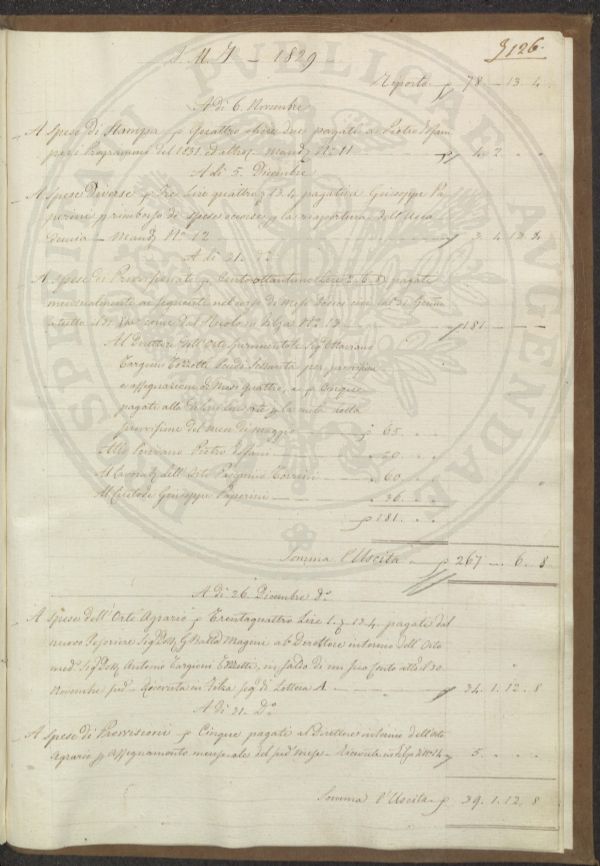 1829
126.
Riporto 78. – 13. 4
A dì 6. Novembre
A Spese di Stampa Quattro Lire due pagate a Pietro
per i Programmi del 1831. ed altro, mand. N° 11 4. 2
A dì 5. Dicembre
A Spese Diverse Tre Lire quattro 13.4 pagati a Giuseppe Pa
perini rimborso di spese occorse la riapertura dell'Acca
demia – Mand. N° 12 3. 4. 13. 4
A dì 21. D°
A Spese di Provvisionati Cento ottantuno pagate
mensualmente ai seguenti nel corso di Mesi
a tutto come dal Ruolo in Filza N° 13 181
Al Direttore dell'Orto Sperimentale Sig. Ottaviano
Targioni Tozzetti Scudi Sessanta per provvisione
e assegnazione di Mesi quattro, e Cinque
pagati alla
provvisione del Mese di Maggio 65.
Allo Scrivano Pietro 20.
Al Lavorat. dell'Orto 60.
Al Custode Giuseppe Paperini 36.
181.
Somma l'Uscita 267 – 6. 8
A dì 26. Dicembre D°
A Spese dell'Orto Agrario Trentaquattro Lire 1. 12.4 pagate dal
nuovo Tesoriere Sig. Dott. Magini al Direttore interino dell'Orto
med. Sig. Dott. Antonio Targioni Tozzetti, in saldo di un suo Conto a tutto il 30
Novembre sud. – Ricevuta in Filza seg. di Lettera A 34. 1. 12. 8
A dì 31. D°
A Spese di Provvisioni Cinque pagati al Direttore interino dell'Orto
Agrario Assegnamento mensuale del sud. mese – Ricevuta in Filza N° 14 5.
Somma l'Uscita 39. 1. 12. 8
PROSPERITATI PUBLICAE AUGENDAE